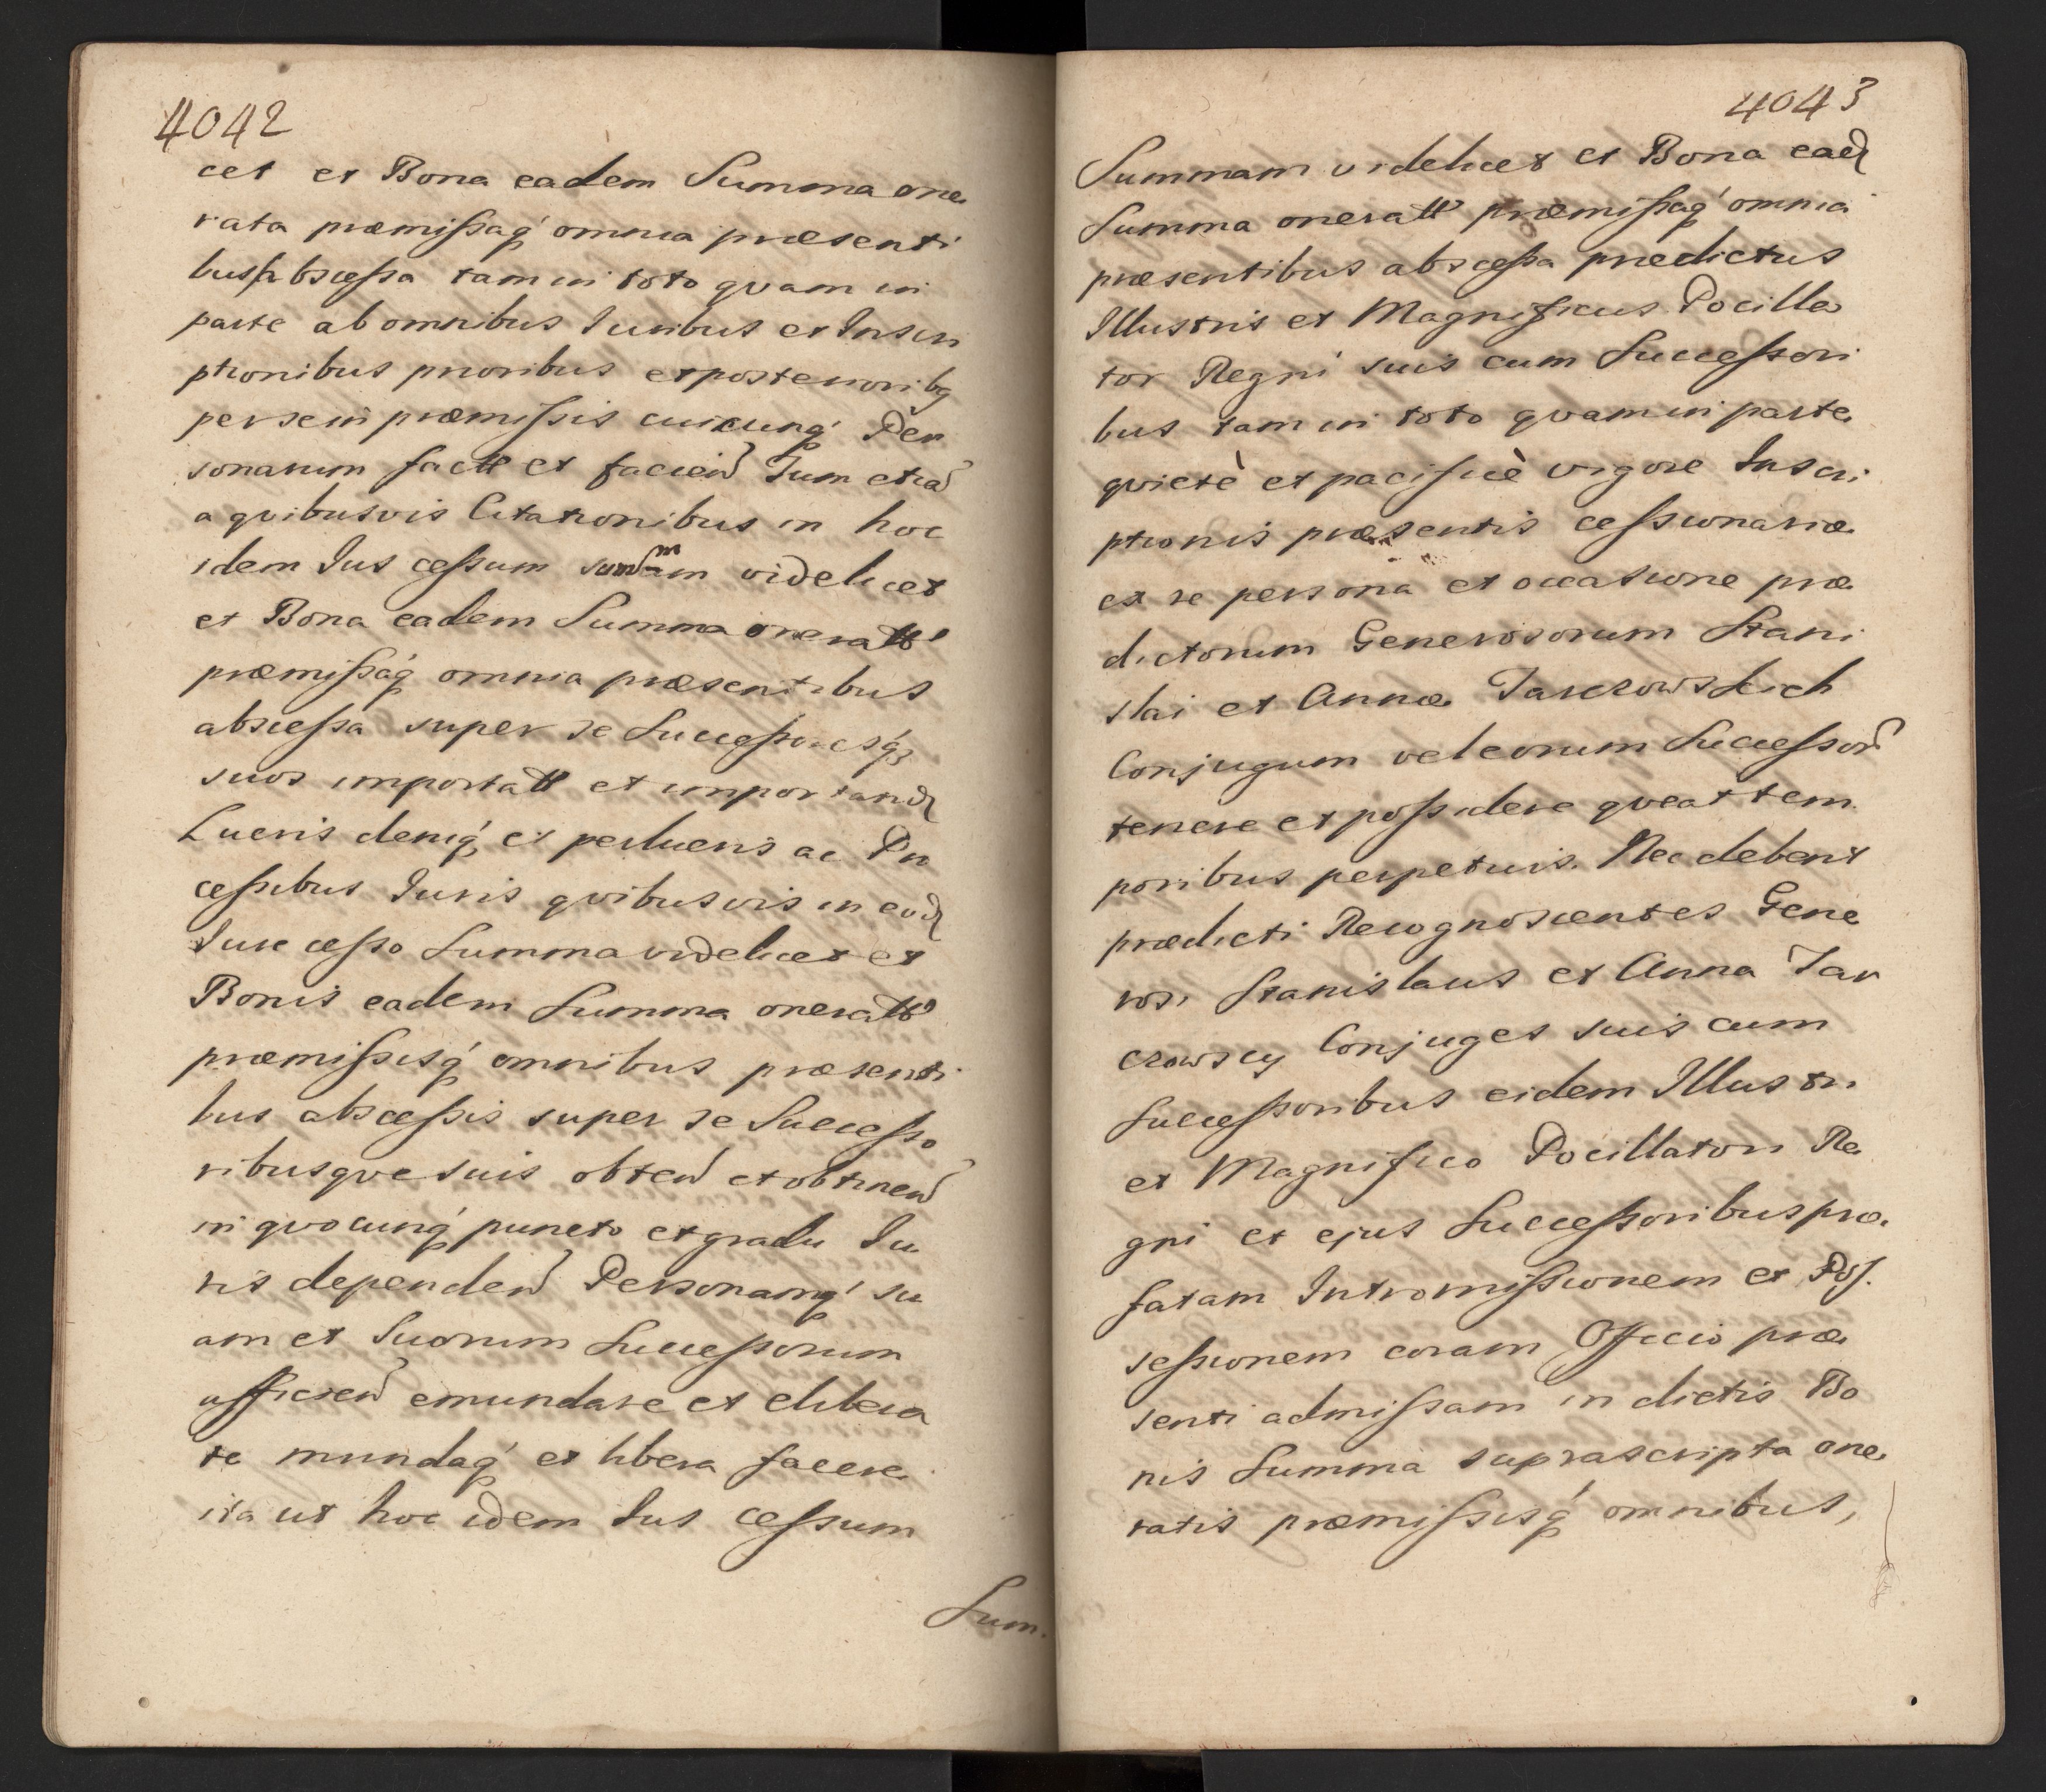 4042
cet et Bona eadem Summa one
rata præmißaq́ omnia præsenti
bus abscessa tam in toto qvam in
parte ab omnibus Iuribus et Inscri
ptionibus prioribus et posterioribq
per se in præmißis cuicunq́ Per
sonarum fact et faciend Tum etia
a qvibusvis Citationibus in hoc
idem Ius ceßum summam videlicet
et Bona eadem Summa oneratt
præmißaq́ omnia præsentibus
abscessa super se Succeßoresq́
suos importatt et importand
Lucris deniq́ et perlucris ac Pro
ceßibus Iuris qvibusvis in eod
Iure ceßo Summa videlicet et
Bonis eadem Summa oneratt
præmißisq́ omnibus præsenti
bus absceßis super se Succeßo
ribusqve suis obtend et obtinend
in qvocunq́ puncto et gradu Iu
ris dependend Personamq́ su
am et Suorum Succeßorum
afficiend emundare et elibera
re mundaq́ et libera facere
ita ut hoc idem Ius ceßsum
Sum.
4043
Summam videlicet et Bona ead
Summa oneratt præmißaq́ omnia
præsentibus absceßa prædictus
Illustris et Magnificus Pocilla
tor Regni suis cum Succeßori
bus tam in toto qvam in parte
qvietè et pacificè vigore Inscri
ptionis præsentis ceßionariæ
ex re persona et occasione præ
dictorum Generosorum Stani
slai et Annæ Jarczowskich
Conjugum vel eorum Succeßor
tenere et poßidere qveat tem
poribus perpetuis. Nec debent
prædicti Recognoscentes Gene
rosi Stanislaus et Anna Jar
czowscy Conjuges suis cum
Succeßoribus eidem Illustri
et Magnifico Pocillatori Re
gni et ejus Succeßoribus præ
fatam Intromißionem et Poß
seßionem coram Officio præ
senti admißam in dictis Bo
nis Summa suprascripta one
ratis præmißisq́ omnibus,